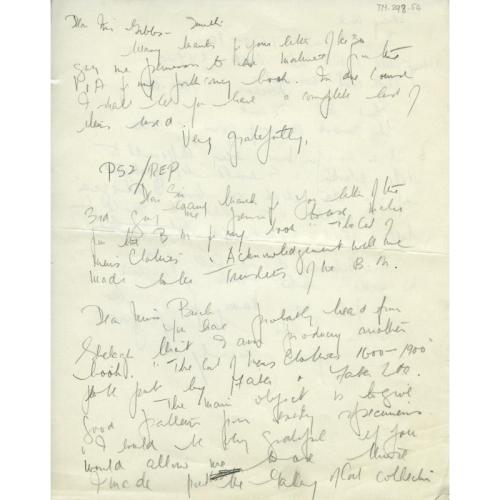 TH.298.54
Dear Miss Gibbs-Smith
Many thanks for your letter of the 30
giving me permission to use material from the
V&A for my forthcoming book. In due course
I shall let you have a complete list of
items used.
Very gratefully,
PS2/REP
Dear Sir
Many thanks for your letter of the
3rd giving me permission to use
from the B.M. for my book "The Cut of
Men's Clothes". Acknowledgement will be
made to the Trustees of the B.M.
Dear Miss
You have probably heard from
that I am producing another
book. "The Cut of Mens Clothes 1600-1900"
to be put by Faber & Faber Ltd.
The main object is to give
good patterns from specimens
I would be very grateful if you
would allow me to use those
I made the Gallery of Cost collection